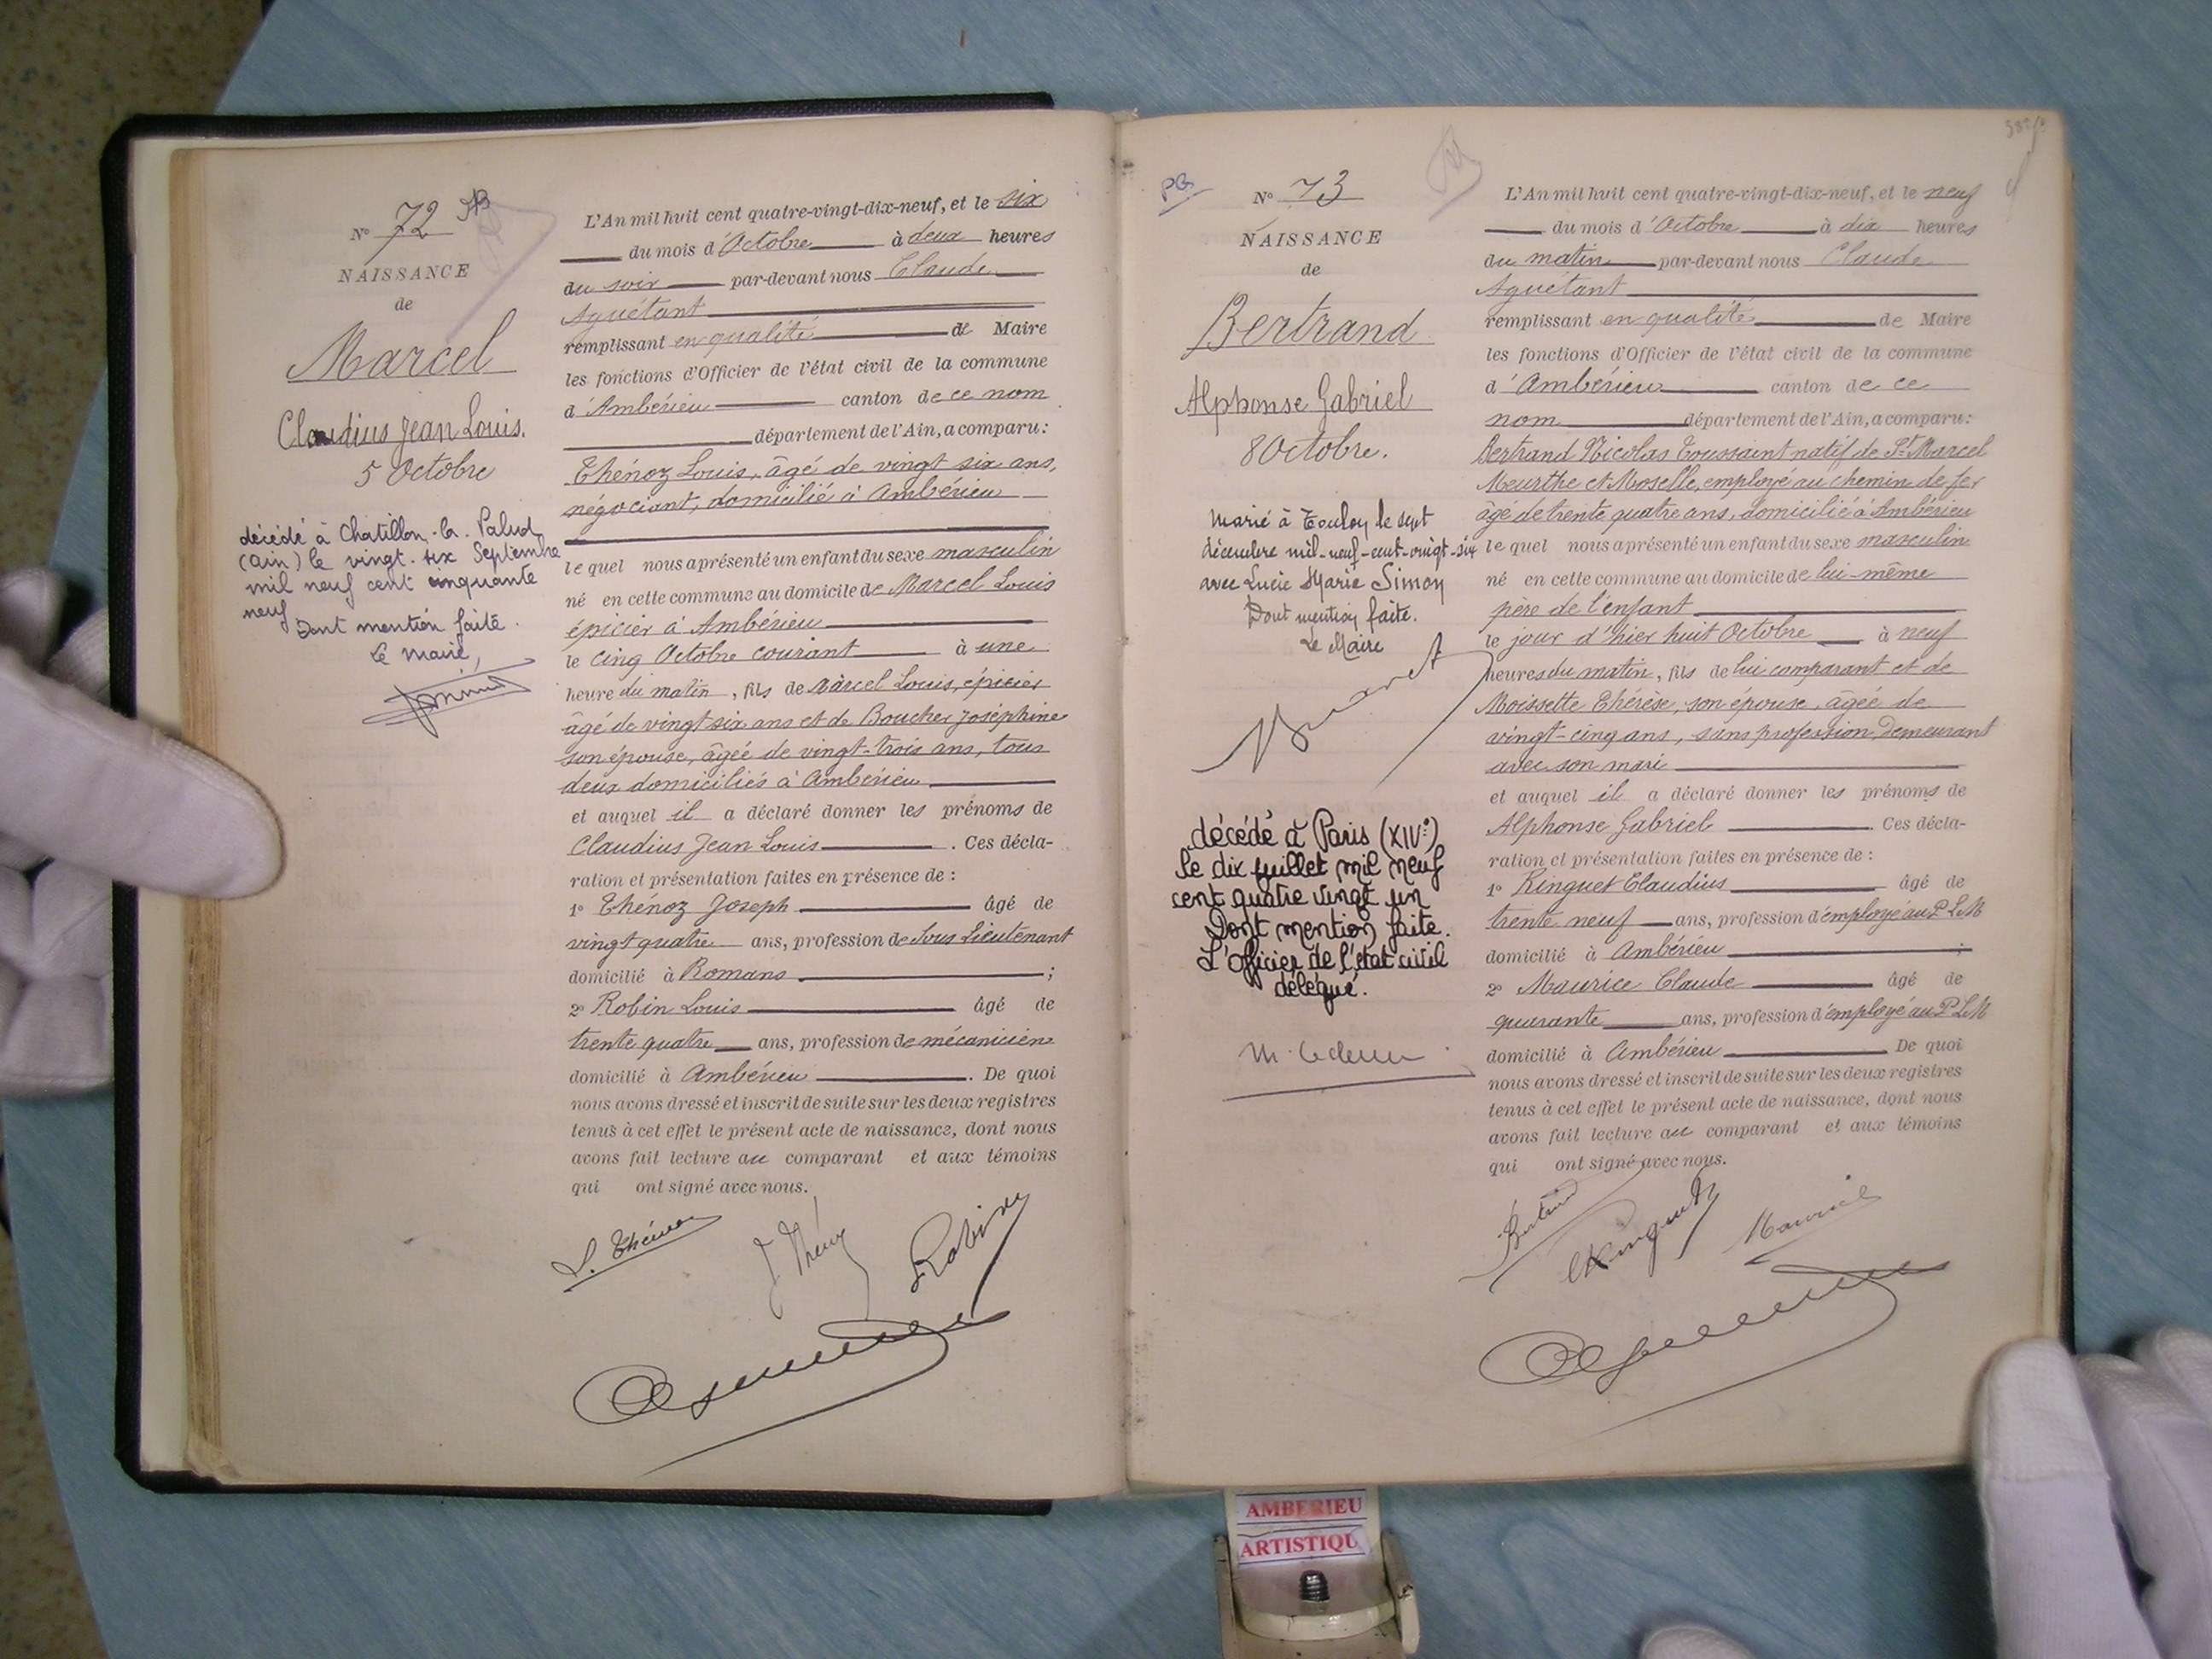 N° 72
NAISSANCE
de
Marcel
Claudius Jean Louis.
5 Octobre
décédé à Chatillon-la-Palud
(Ain) le vingt-six Septembre
mil neuf cent cinquante
neuf
Dont mention faite.
Le Maire,
L'An mil huit cent quatre-vingt-dix-neuf, et le six
du mois d'Octobre à deux heures
du soir par-devant nous Claude
Aguétant
remplissant en qualité de Maire
les fonctions d'Officier de l'état civil de la commune
d'Ambérieu canton de ce nom
département de l'Ain, a comparu:
Thénoz Louis, âgé de vingt six ans,
négociant, domicilié à Ambérieu
lequel nous a présenté un enfant du sexe masculin
né en cette commune au domicile de Marcel Louis
épicier à Ambérieu
le cinq Octobre courant à une
heure du matin, fils de Marcel Louis, épicier
âgé de vingt six ans et de Boucher Joséphine
son épouse, âgée de vingt-trois ans, tous
deux domiciliés à Ambérieu
et auquel il a déclaré donner les prénoms de
Claudius Jean Louis. Ces décla-
ration et présentation faites en présence de :
1° Thénoz Joseph âgé de
vingt quatre ans, profession de Sous Lieutenant
domicilié à Romans ;
2° Robin Louis âgé de
trente quatre ans, profession de mécanicien
domicilié à Ambérieu. De quoi
nous avons dressé et inscrit de suite sur les deux registres
tenus à cet effet le présent acte de naissance, dont nous
avons fait lecture au comparant et aux témoins
qui ont signé avec nous.
L. Thénoz
Robin
PG
N° 73
NAISSANCE
de
Bertrand
Alphonse Gabriel
8 Octobre.
Marié à Toulon le sept
décembre mil-neuf-cent-vingt-six
avec Lucie Marie Simon
Dont mention faite.
Le Maire
décédé à Paris (XIVe)
le dix juillet mil neuf
cent quatre vingt un
Dont mention faite.
L'Officier de l'état civil
délégué.
L'An mil huit cent quatre-vingt-dix-neuf, et le neuf
du mois d'Octobre à dix heures
du matin par-devant nous Claude
Aguétant
remplissant en qualité de Maire
les fonctions d'Officier de l'état civil de la commune
d'Ambérieu canton de ce
nom département de l'Ain, a comparu:
Bertrand Nicolas Toussaint natif de St Marcel
Meurthe et Moselle, employé au chemin de fer
âgé de trente quatre ans, domicilié à Ambérieu
lequel nous a présenté un enfant du sexe masculin
né en cette commune au domicile de lui-même
père de l'enfant
le jour d'hier huit Octobre à neuf
heures du matin, fils de lui comparant et de
Moissette Thérèse, son épouse, âgée de
vingt-cinq ans, sans profession Demeurant
avec son mari
et auquel il a déclaré donner les prénoms de
Alphonse Gabriel. Ces décla-
ration et présentation faites en présence de :
1° Ringuet Claudius âgé de
trente neuf ans, profession d'employé au P L M
domicilié à Ambérieu ;
2° Maurice Claude âgé de
quarante ans, profession d'employé au P L M
domicilié à Ambérieu De quoi
nous avons dressé et inscrit de suite sur les deux registres
tenus à cet effet le présent acte de naissance, dont nous
avons fait lecture au comparant et aux témoins
qui ont signé avec nous.
Bertrand
Ringuet
Maurice
AMBERIEU
ARTISTIQU